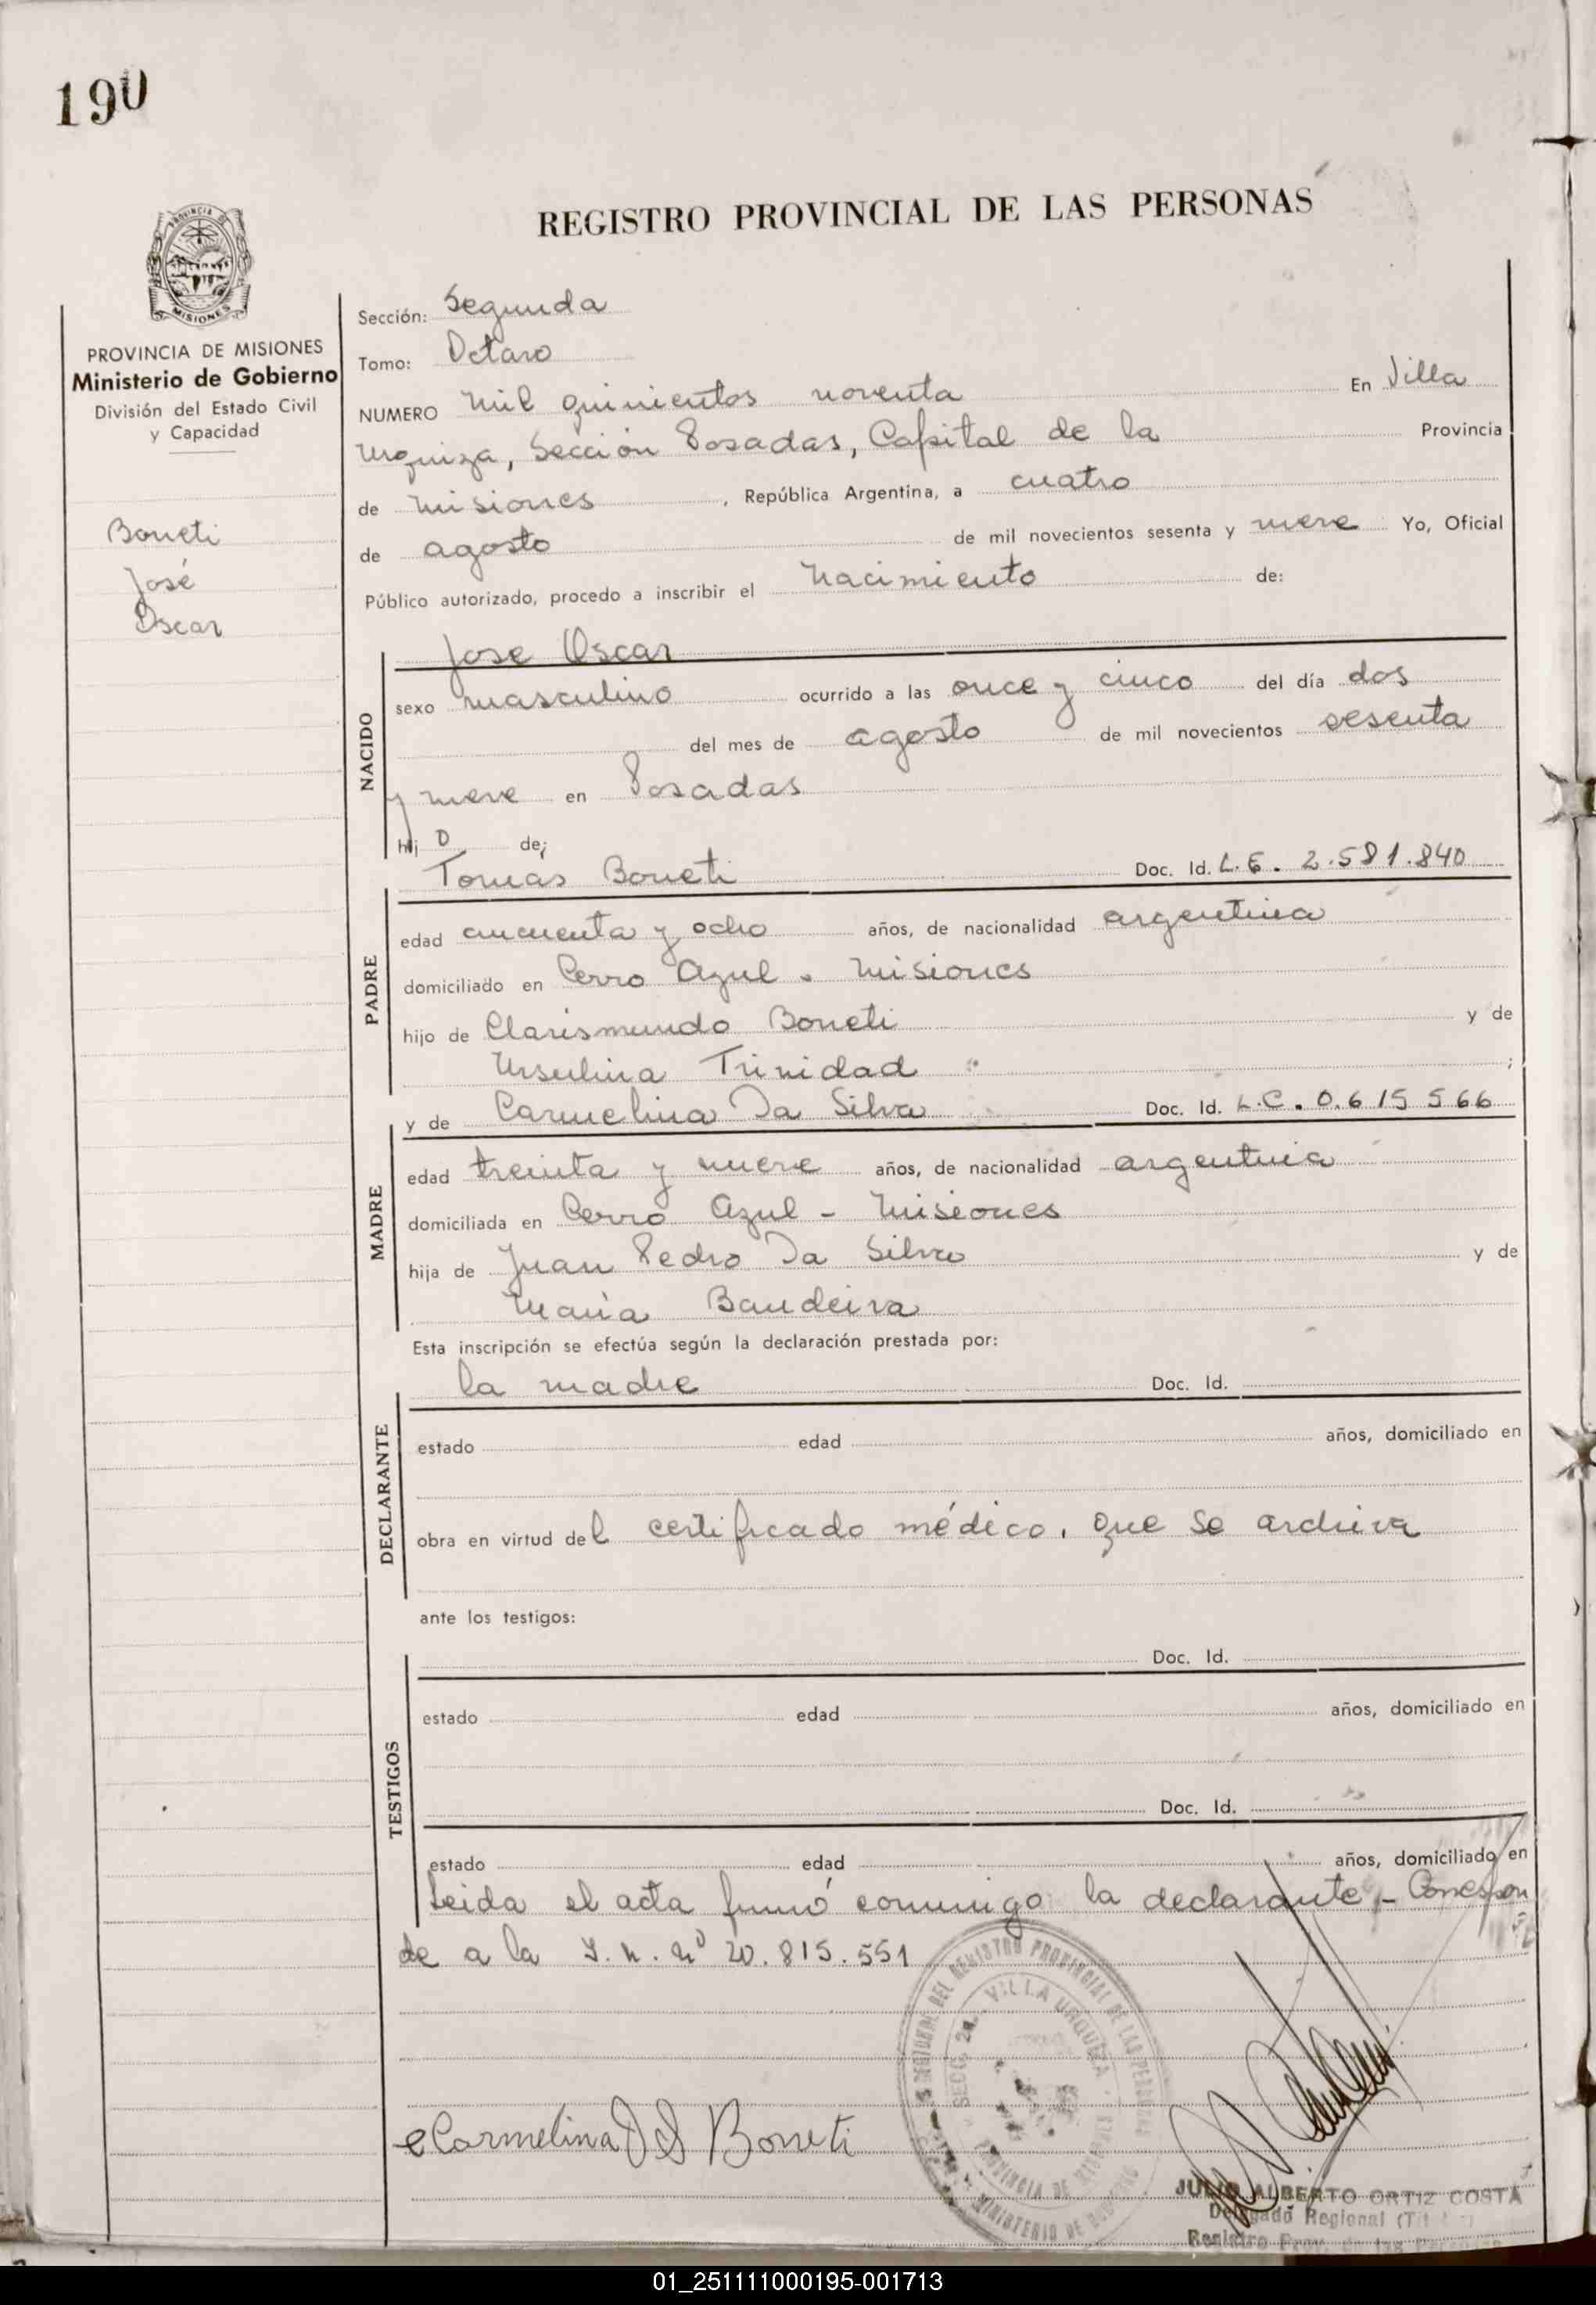 190
REGISTRO PROVINCIAL DE LAS PERSONAS
PROVINCIA DE MISIONES
Ministerio de Gobierno
División del Estado Civil
y Capacidad
Boneti
José
Oscar
Sección: Segunda
Tomo: Octavo
NUMERO mil quinientos noventa En Villa
Urquiza, Sección Posadas, Capital de la Provincia
de misiones, República Argentina, a cuatro
de agosto de mil novecientos sesenta y nueve Yo, Oficial
Público autorizado, procedo a inscribir el nacimiento de:
NACIDO
Jose Oscar
sexo masculino ocurrido a las once y cinco del día dos
del mes de agosto de mil novecientos sesenta
y nueve en Posadas
hij o de;
PADRE
Tomás Boneti Doc. Id. L.E. 2.581.840
edad cincuenta y ocho años, de nacionalidad argentina
domiciliado en Cerro Azul - Misiones
hijo de Clarismundo Boneti y de
Ursulina Trinidad ;
MADRE
y de Carmelina Da Silva Doc. Id. L.C. 0.615 566
edad treinta y nueve años, de nacionalidad argentina
domiciliada en Cerro Azul - Misiones
hija de Juan Pedro Da Silva y de
María Bandeira
Esta inscripción se efectúa según la declaración prestada por:
DECLARANTE
la madre Doc. Id.
estado edad años, domiciliado en
obra en virtud del certificado médico, que se archiva
ante los testigos:
TESTIGOS
Doc. Id.
estado edad años, domiciliado en
Doc. Id.
estado edad años, domiciliado en
Leida el acta firmó conmigo la declarante - Correspon
de a la I.N. Nº 20.815.551
Carmelina DS Boneti
SECC. 2a. VILLA URQUIZA
PROVINCIA DE MISIONES
REGIONAL DEL REGISTRO PROVINCIAL DE LAS PERSONAS
MINISTERIO DE GOBIERNO
JULIO ALBERTO ORTIZ COSTA
Delegado Regional
01_251111000195-001713